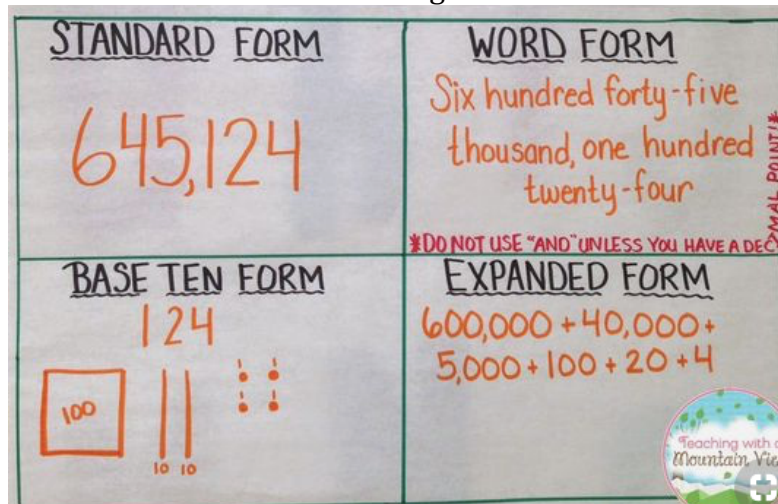 STANDARD FORM
645,124
WORD FORM
Six hundred forty-five
thousand, one hundred
twenty-four
*DO NOT USE "AND" UNLESS YOU HAVE A DECIMAL POINT!*
BASE TEN FORM
124
100
10 10
1 1
1 1
EXPANDED FORM
600,000 + 40,000 +
5,000 + 100 + 20 + 4
Teaching with a
Mountain Vie